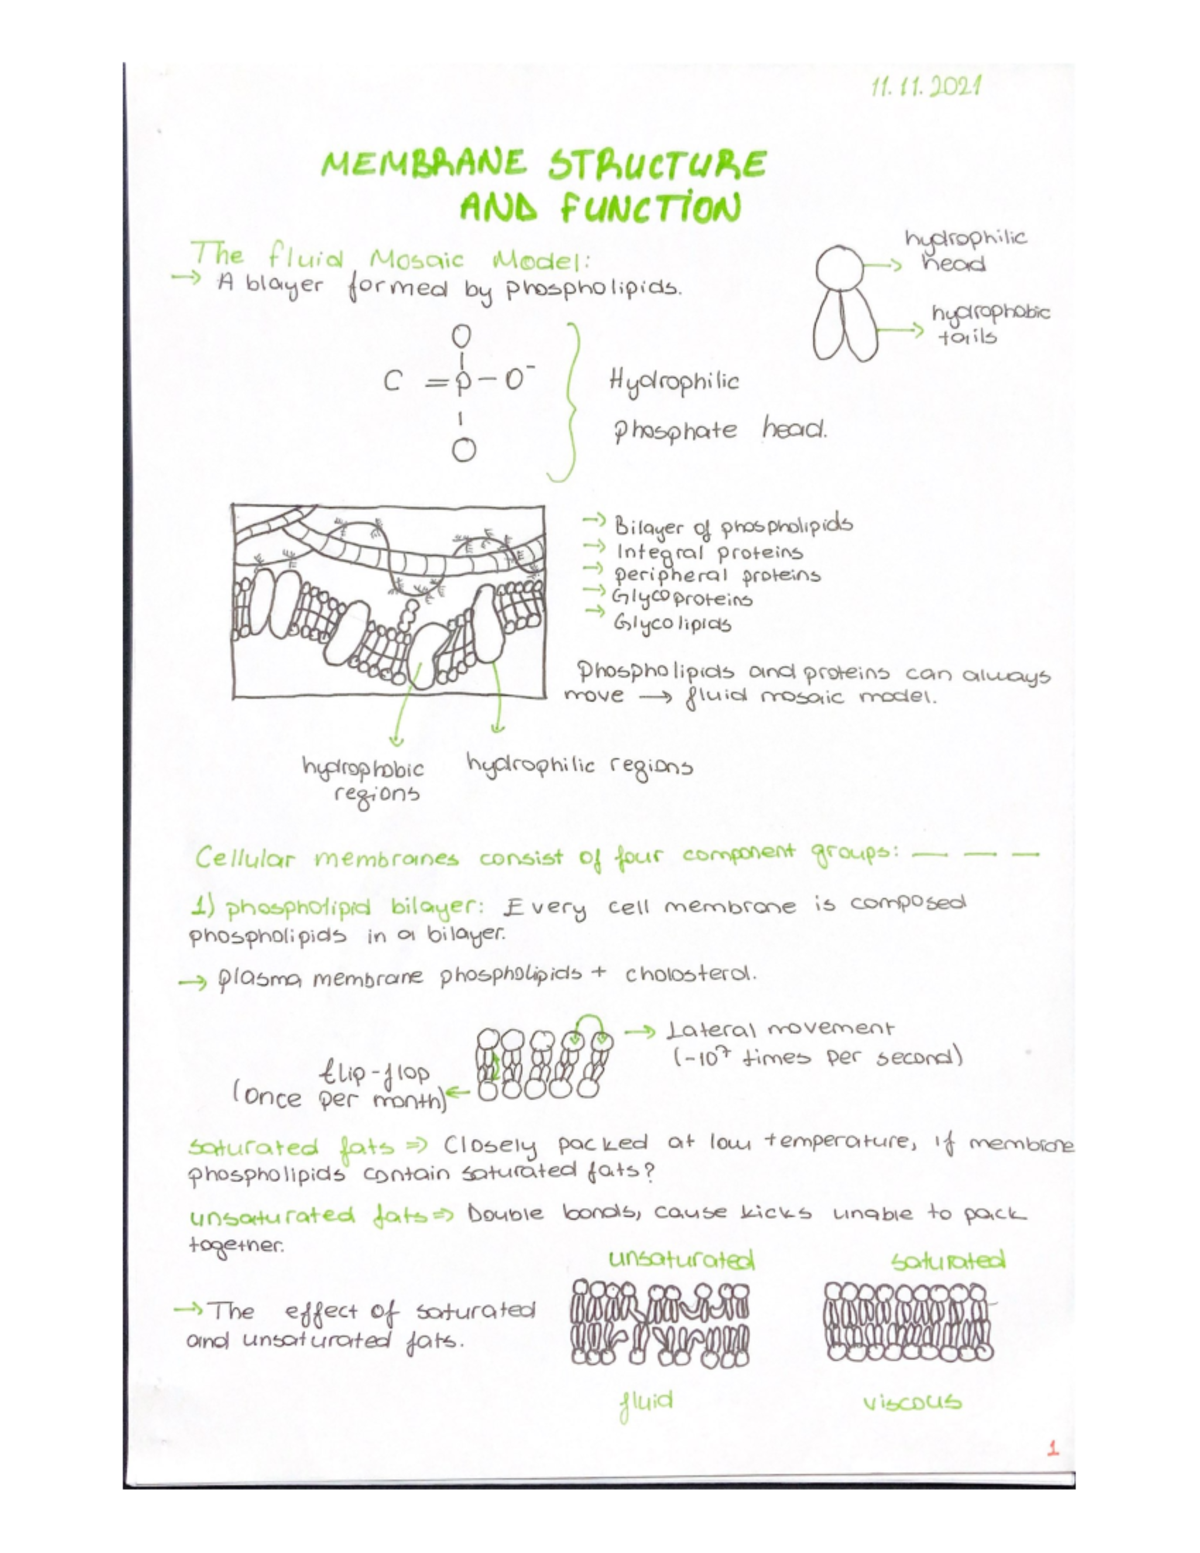 11.11.2021
MEMBRANE STRUCTURE
AND FUNCTION
The fluid Mosaic Model:
→ A blayer formed by phospholipids.
hydrophilic
head
hydrophobic
tails
O
C = P - O⁻
O
Hydrophilic
phosphate head.
→ Bilayer of phospholipids
→ Integral proteins
→ peripheral proteins
→ Glycoproteins
→ Glycolipids
Phospholipids and proteins can always
move → fluid mosaic model.
hydrophobic
regions
hydrophilic regions
Cellular membranes consist of four component groups: — — —
1) phospholipid bilayer: Every cell membrane is composed
phospholipids in a bilayer.
→ plasma membrane phospholipids + cholosterol.
→ Lateral movement
(~10⁷ times per second)
flip-flop
(once per month)
saturated fats ⇒ Closely packed at low temperature, if membrane
phospholipids contain saturated fats?
unsaturated fats ⇒ Double bonds, cause kicks unable to pack
together.
unsaturated
saturated
→ The effect of saturated
and unsaturated fats.
fluid
viscous
1